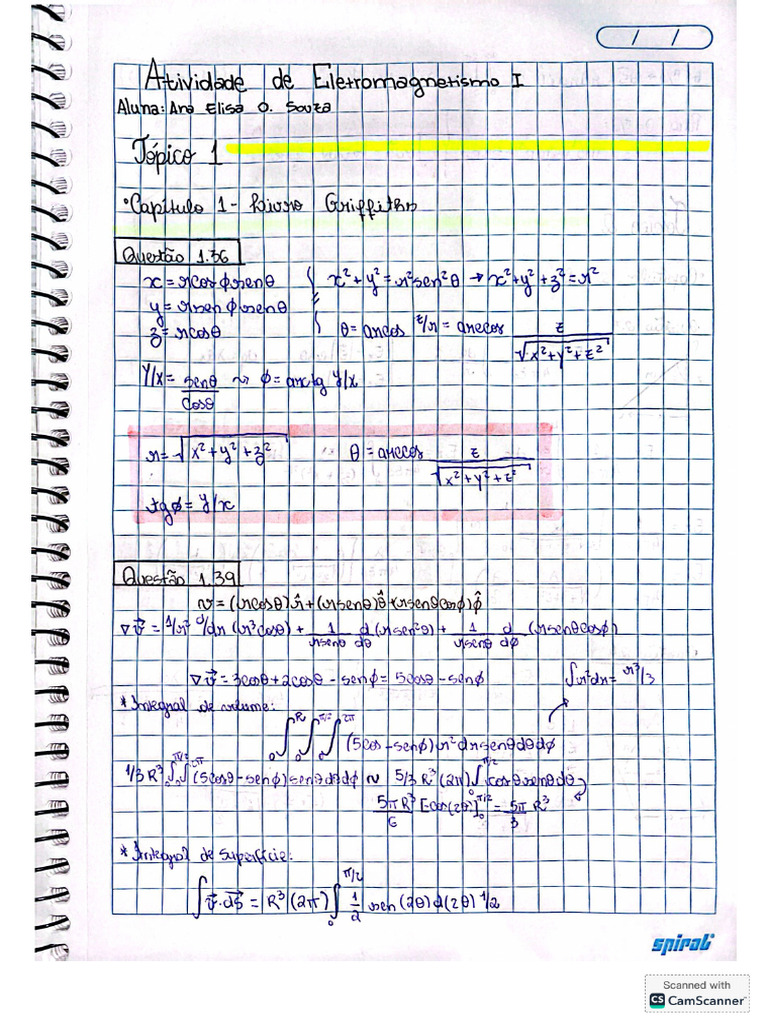 / /
Atividade de Eletromagnetismo I
Aluna: Ana Elisa O. Souza
Tópico 1
• Capítulo 1 - Livro Griffiths
Questão 1.36
x = r cos φ r sen θ   x² + y² = r² sen² θ → x² + y² + z² = r²
y = r sen φ r sen θ
z = r cos θ   θ = arccos z/r = arccos z / √(x² + y² + z²)
y/x = sen θ / cos θ ⤳ φ = arctg y/x
r = √(x² + y² + z²)   θ = arccos z / √(x² + y² + z²)
tg φ = y/x
Questão 1.39
v = (r cos θ) r̂ + (r sen θ) θ̂ + (r sen θ cos φ) φ̂
∇ v⃗ = 1/r² d/dr (r³ cos θ) + 1/(r sen θ) d/dθ (r sen² θ) + 1/(r sen θ) d/dφ (r sen θ cos φ)
∇ v⃗ = 3 cos θ + 2 cos θ - sen φ = 5 cos θ - sen φ   ∫ r² dr = r³/3
* Integral de volume:
∫₀^R ∫₀^π/2 ∫₀^2π (5 cos - sen φ) r² dr sen θ dθ dφ
1/3 R³ ∫₀^π/2 ∫₀^2π (5 cos θ - sen φ) sen θ dθ dφ ⤳ 5/3 R³ (2π) ∫₀^π/2 cos θ sen θ dθ
5πR³/6 [cos(2θ)]₀^π/2 = 5π/3 R³
* Integral de Superfície:
∫ v⃗ · ds⃗ = R³ (2π) ∫₀^π/2 1/2 sen (2θ) d(2θ) 1/2
spiral
Scanned with
CS CamScanner